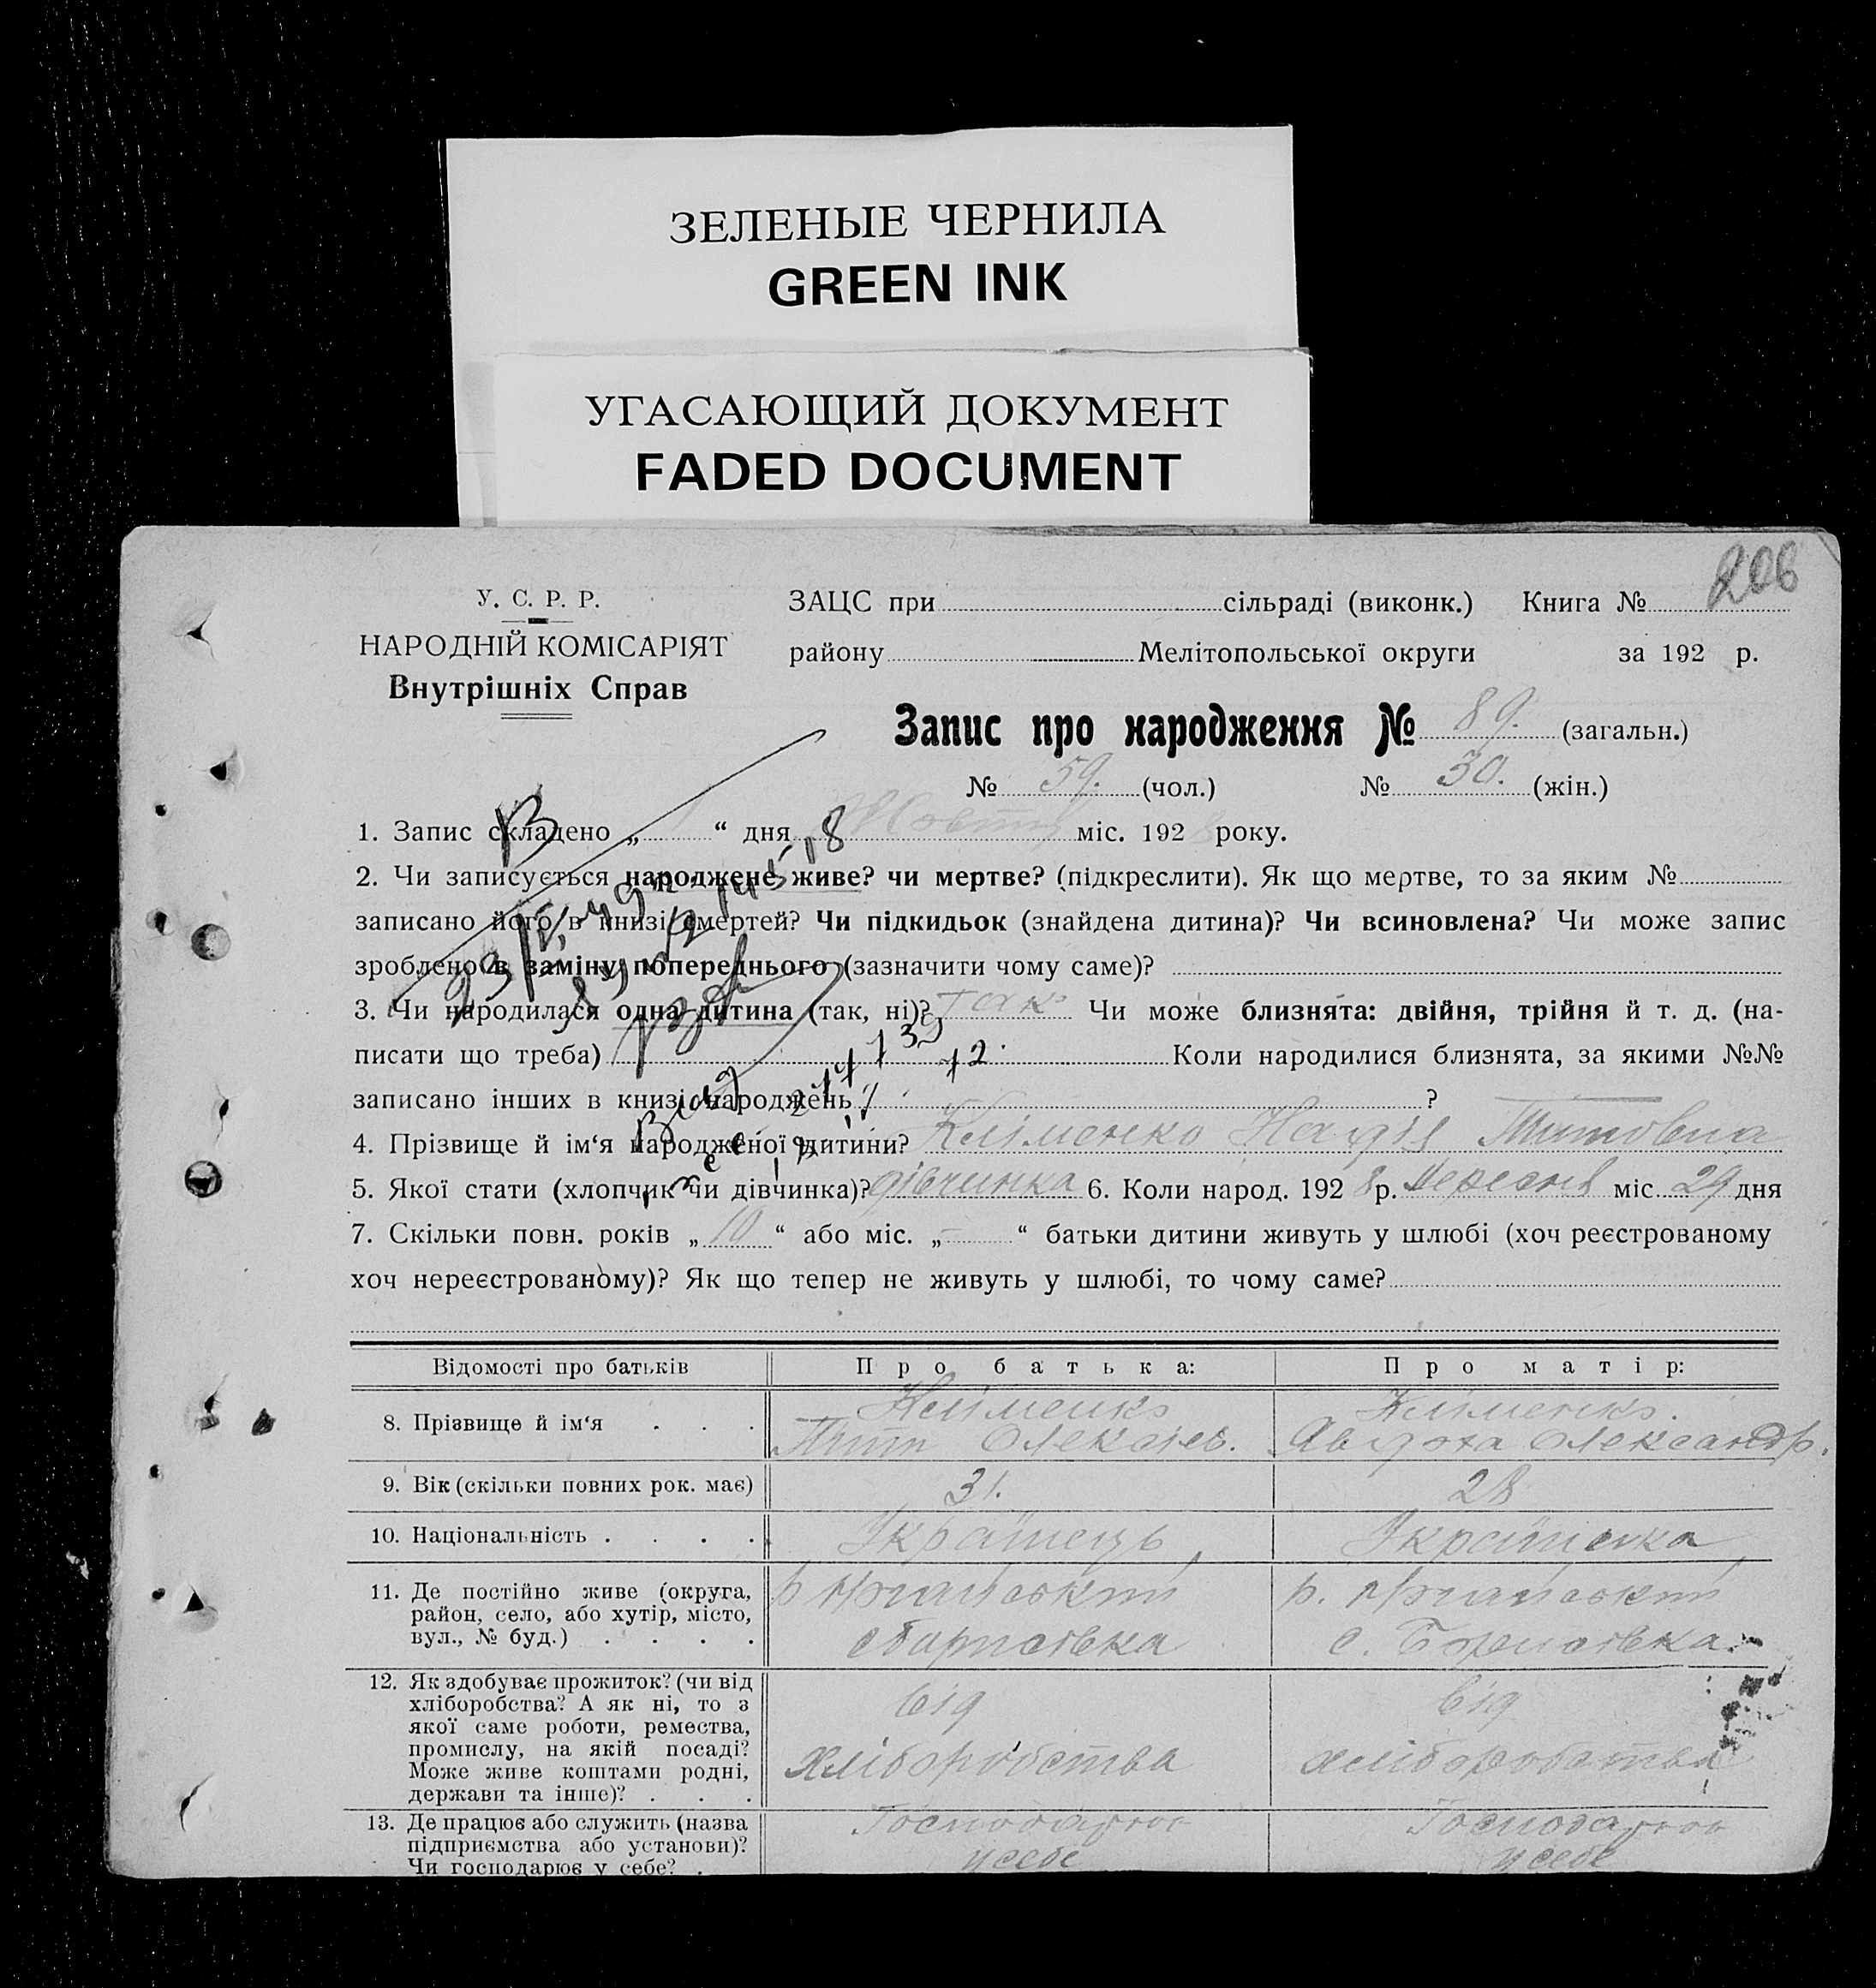 ЗЕЛЕНЫЕ ЧЕРНИЛА
GREEN INK
УГАСАЮЩИЙ ДОКУМЕНТ
FADED DOCUMENT
206
У. С. Р. Р.
НАРОДНІЙ КОМІСАРІЯТ
Внутрішніх Справ
ЗАЦС при сільраді (виконк.) Книга №
району Мелітопольської округи за 192 р.
Запис про народження № 89. (загальн.)
№ 59. (чол.) № 30. (жін.)
1. Запис складено „ “ дня Жовтня міс. 192 8 року.
2. Чи записується народжене живе? чи мертве? (підкреслити). Як що мертве, то за яким №
записано його в книзі смертей? Чи підкидьок (знайдена дитина)? Чи всиновлена? Чи може запис
зроблено в заміну попереднього (зазначити чому саме)?
3. Чи народилася одна дитина (так, ні)? Так Чи може близнята: двійня, трійня й т. д. (на-
писати що треба) Коли народилися близнята, за якими №№
записано інших в книзі народжень ?
4. Прізвище й ім‘я народженої дитини? Кліменко Надія Титовна
5. Якої стати (хлопчик чи дівчинка)? дівчинка 6. Коли народ. 192 8 р. Вересня міс 29 дня
7. Скільки повн. років „ 10 “ або міс. „ – “ батьки дитини живуть у шлюбі (хоч реєстрованому
хоч нереєстрованому)? Як що тепер не живуть у шлюбі, то чому саме?
Відомості про батьків Про батька: Про матір:
8. Прізвище й ім‘я . . . Кліменко Кліменко.
Тит Олексієв. Авдоха Олександр.
9. Вік (скільки повних рок. має) 31. 28
10. Національність . . . . Українець Українка
11. Де постійно живе (округа,
район, село, або хутір, місто,
вул., № буд.) . . . .
12. Як здобуває прожиток? (чи від
хліборобства? А як ні, то з
якої саме роботи, ремества,
промислу, на якій посаді?
Може живе коштами родні,
держави та інше)? . . .
від хліборобства від хліборобства
13. Де працює або служить (назва
підприємства або установи)?
Чи господарює у себе? .
у себе у себе